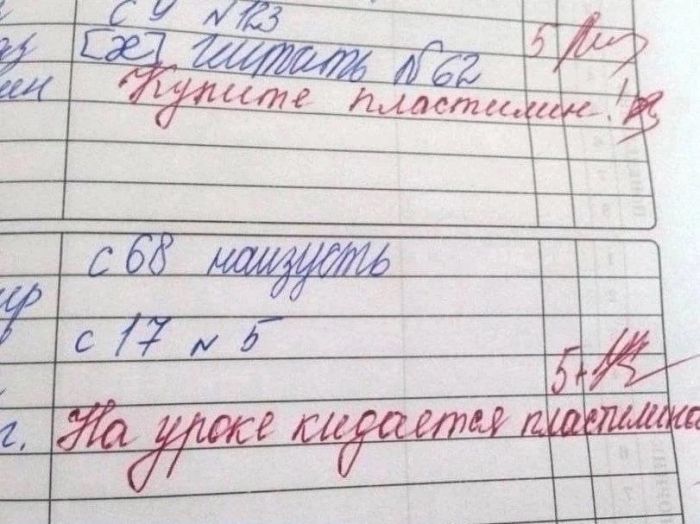 с 9 №123
[х] читать №62 5
Купите пластилин!
с 68 наизусть
с 17 № 5
5+
г. На уроке кидается пластилином